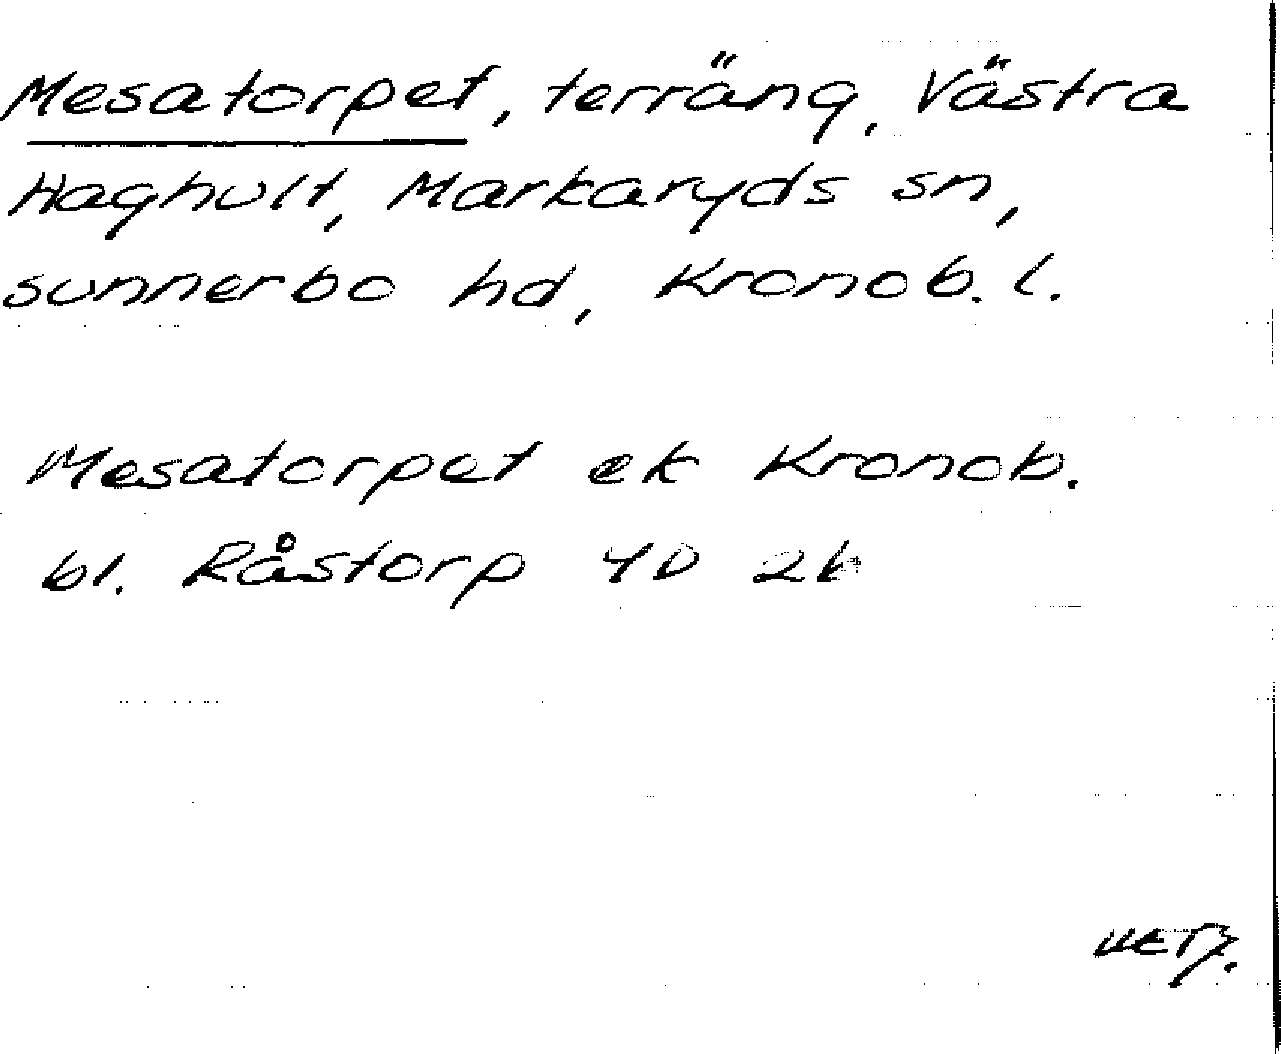 Mesatorpet, terräng, Västra
Haghult, Markaryds sn,
sunnerbo hd, Kronob. l.
Mesatorpet ek Kronob.
bl. Råstorp 4D 2h